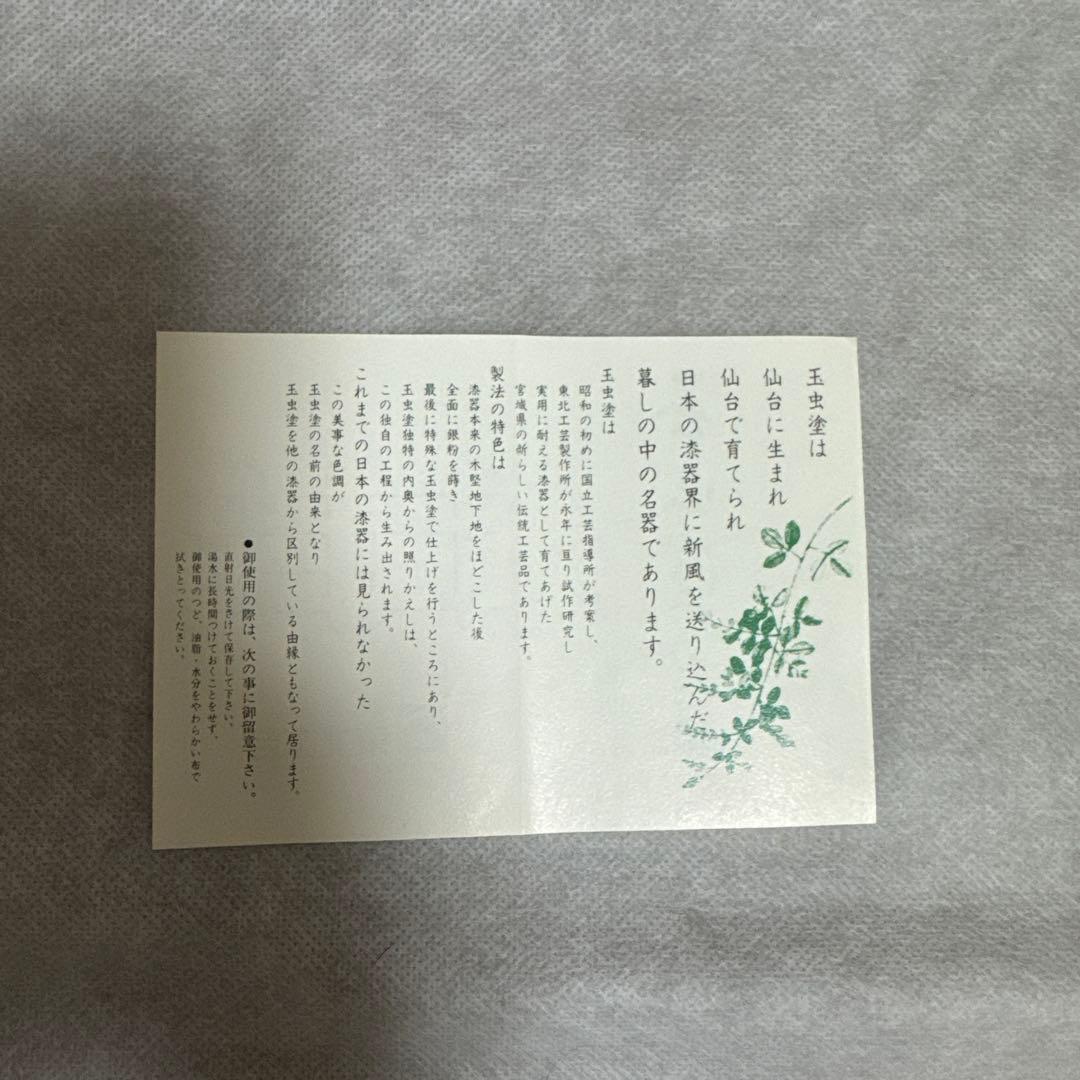 玉虫塗は
仙台に生まれ
仙台で育てられ
日本の漆器界に新風を送り込んだ
暮しの中の名器であります。
玉虫塗は
昭和の初めに国立工芸指導所が考案し、
東北工芸製作所が永年に亘り試作研究し
実用に耐える漆器として育てあげた
宮城県の新らしい伝統工芸品であります。
製法の特色は
漆器本来の木堅地下地をほどこした後
全面に銀粉を蒔き
最後に特殊な玉虫塗で仕上げを行うところにあり、
玉虫塗独特の内奥からの照りかえしは、
この独自の工程から生み出されます。
これまでの日本の漆器には見られなかった
この美事な色調が
玉虫塗の名前の由来となり
玉虫塗を他の漆器から区別している由縁ともなって居ります。
●御使用の際は、次の事に御留意下さい。
直射日光をさけて保存して下さい。
湯水に長時間つけておくことをせず、
御使用のつど、油脂・水分をやわらかい布で
拭きとってください。